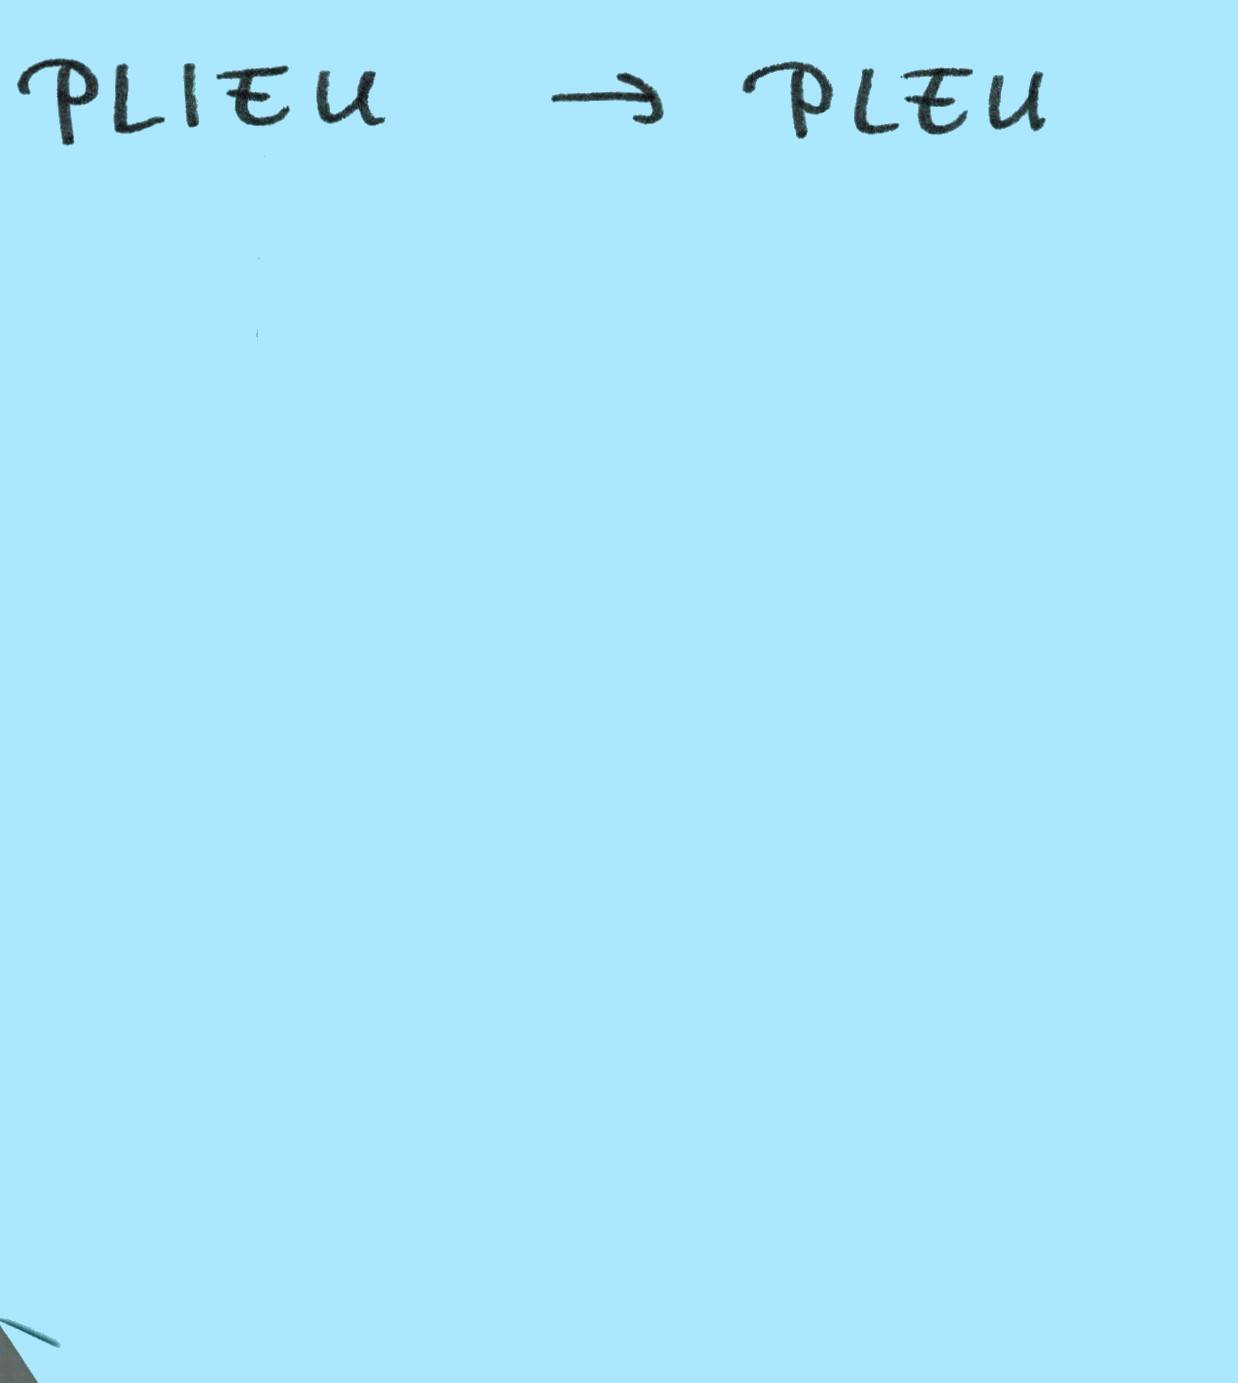 PLIEU → PLEU